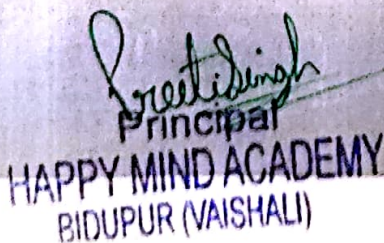 Preeti Singh
Principal
HAPPY MIND ACADEMY
BIDUPUR (VAISHALI)